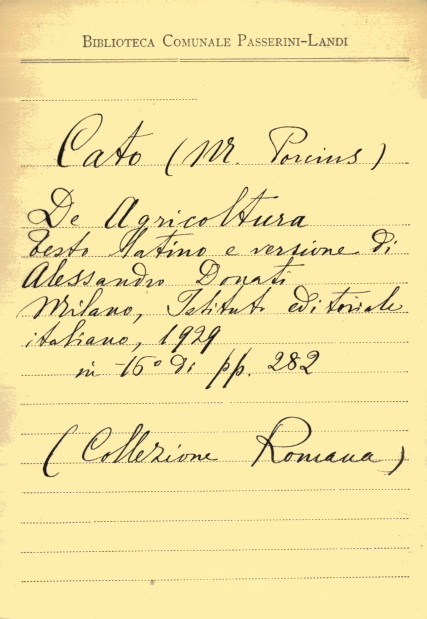 BIBLIOTECA COMUNALE PASSERINI-LANDI
Cato (M. Porcius)
De Agricoltura
testo latino e versione di
Alessandro Donati
Milano, Istituto editoriale
italiano, 1929
in -16° di pp. 282
(Collezione Romana)